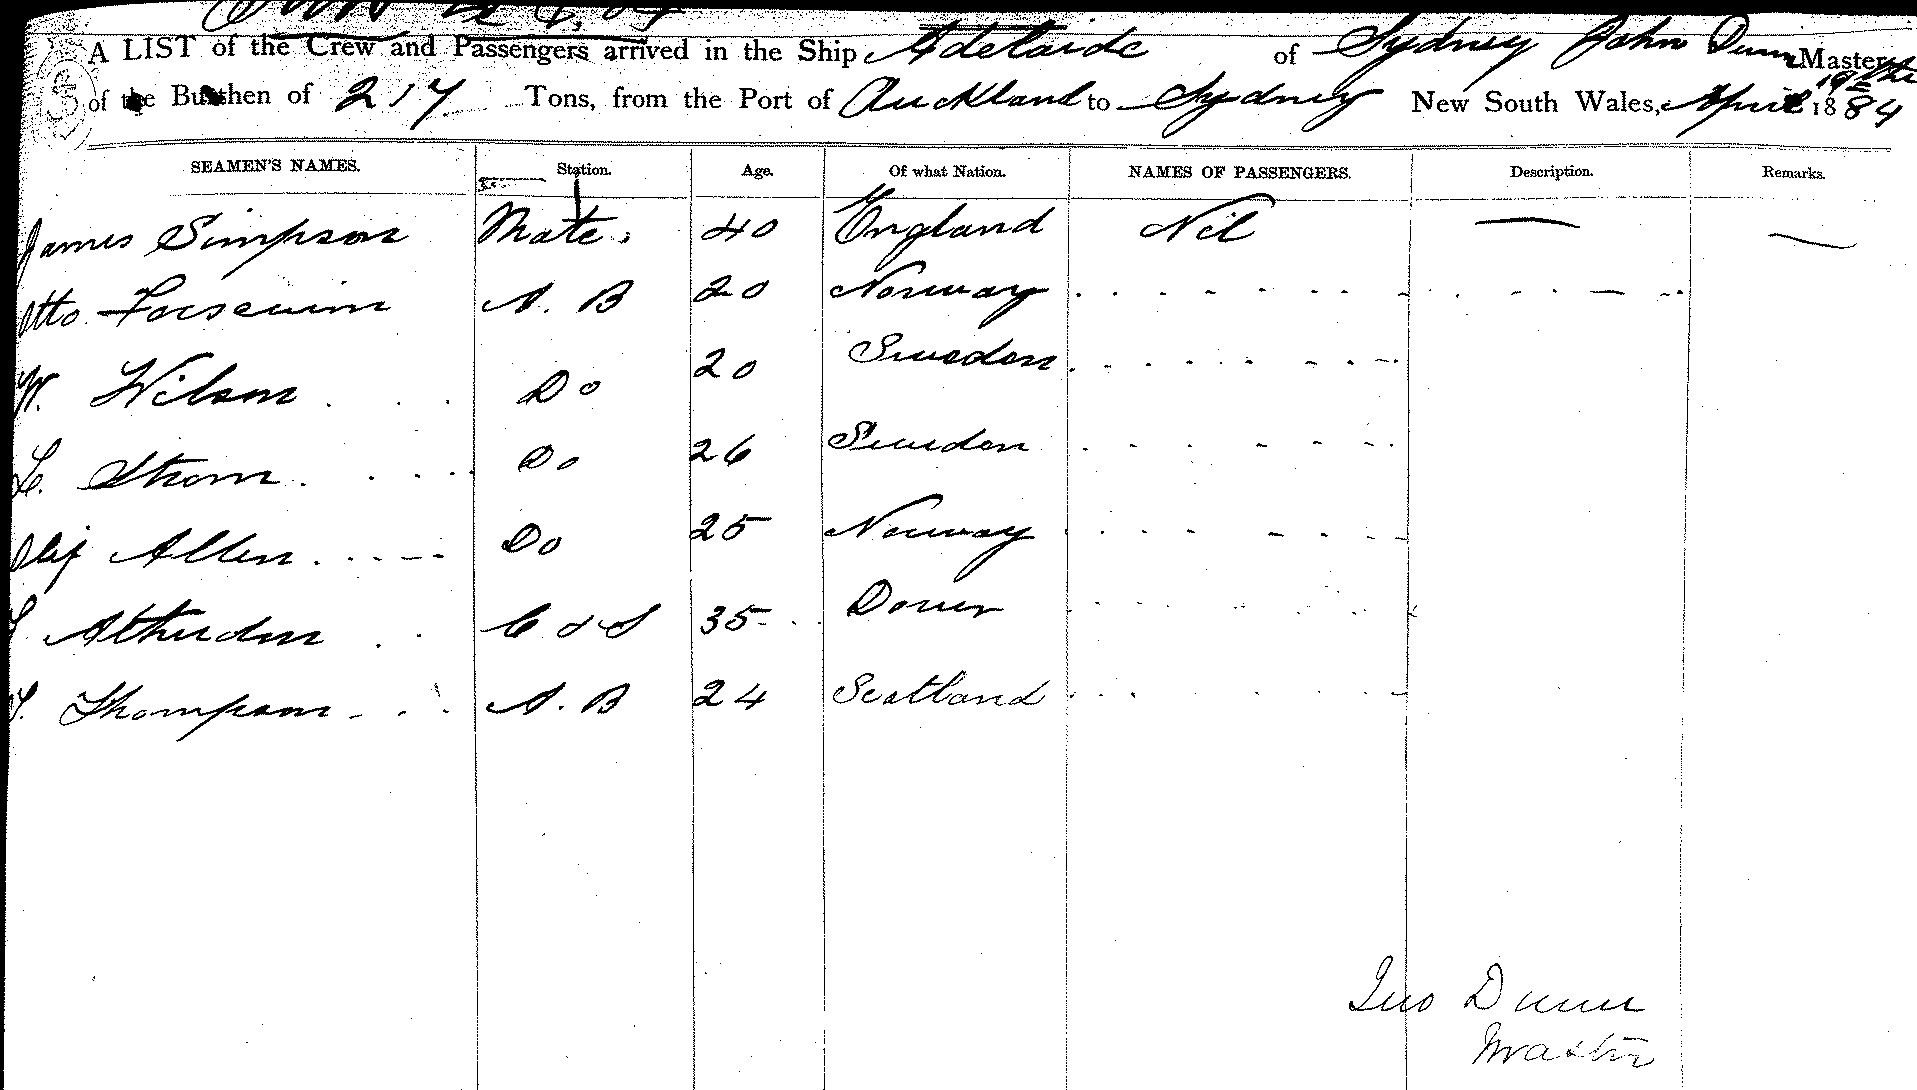 A LIST of the Crew and Passengers arrived in the Ship Adelaide of Sydney John Dunn Master
of the Burthen of 217 Tons, from the Port of Auckland to Sydney New South Wales, April 19th 1884
SEAMEN'S NAMES. Station. Age. Of what Nation. NAMES OF PASSENGERS. Description. Remarks.
James Simpson Mate. 40 England Nil — —
Otto A. B 20 Norway
W. Wilson Do 20 Sweden
L. Strom Do 26 Sweden
Olif Allen Do 25 Norway
C & S 35 Dover
T. Thompson A. B 24 Scotland
Jno Dunn
Master